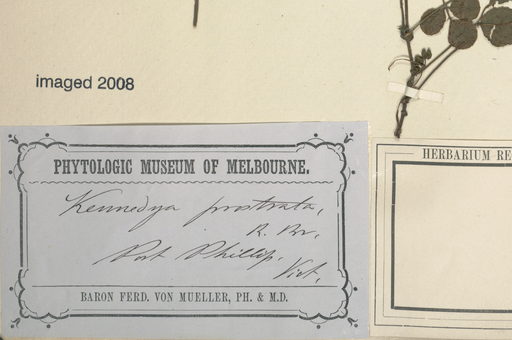 imaged 2008
PHYTOLOGIC MUSEUM OF MELBOURNE.
Kennedya prostrata,
R. Br.
Port Phillip,
Vict.
BARON FERD. VON MUELLER, PH. & M.D.
HERBARIUM RE